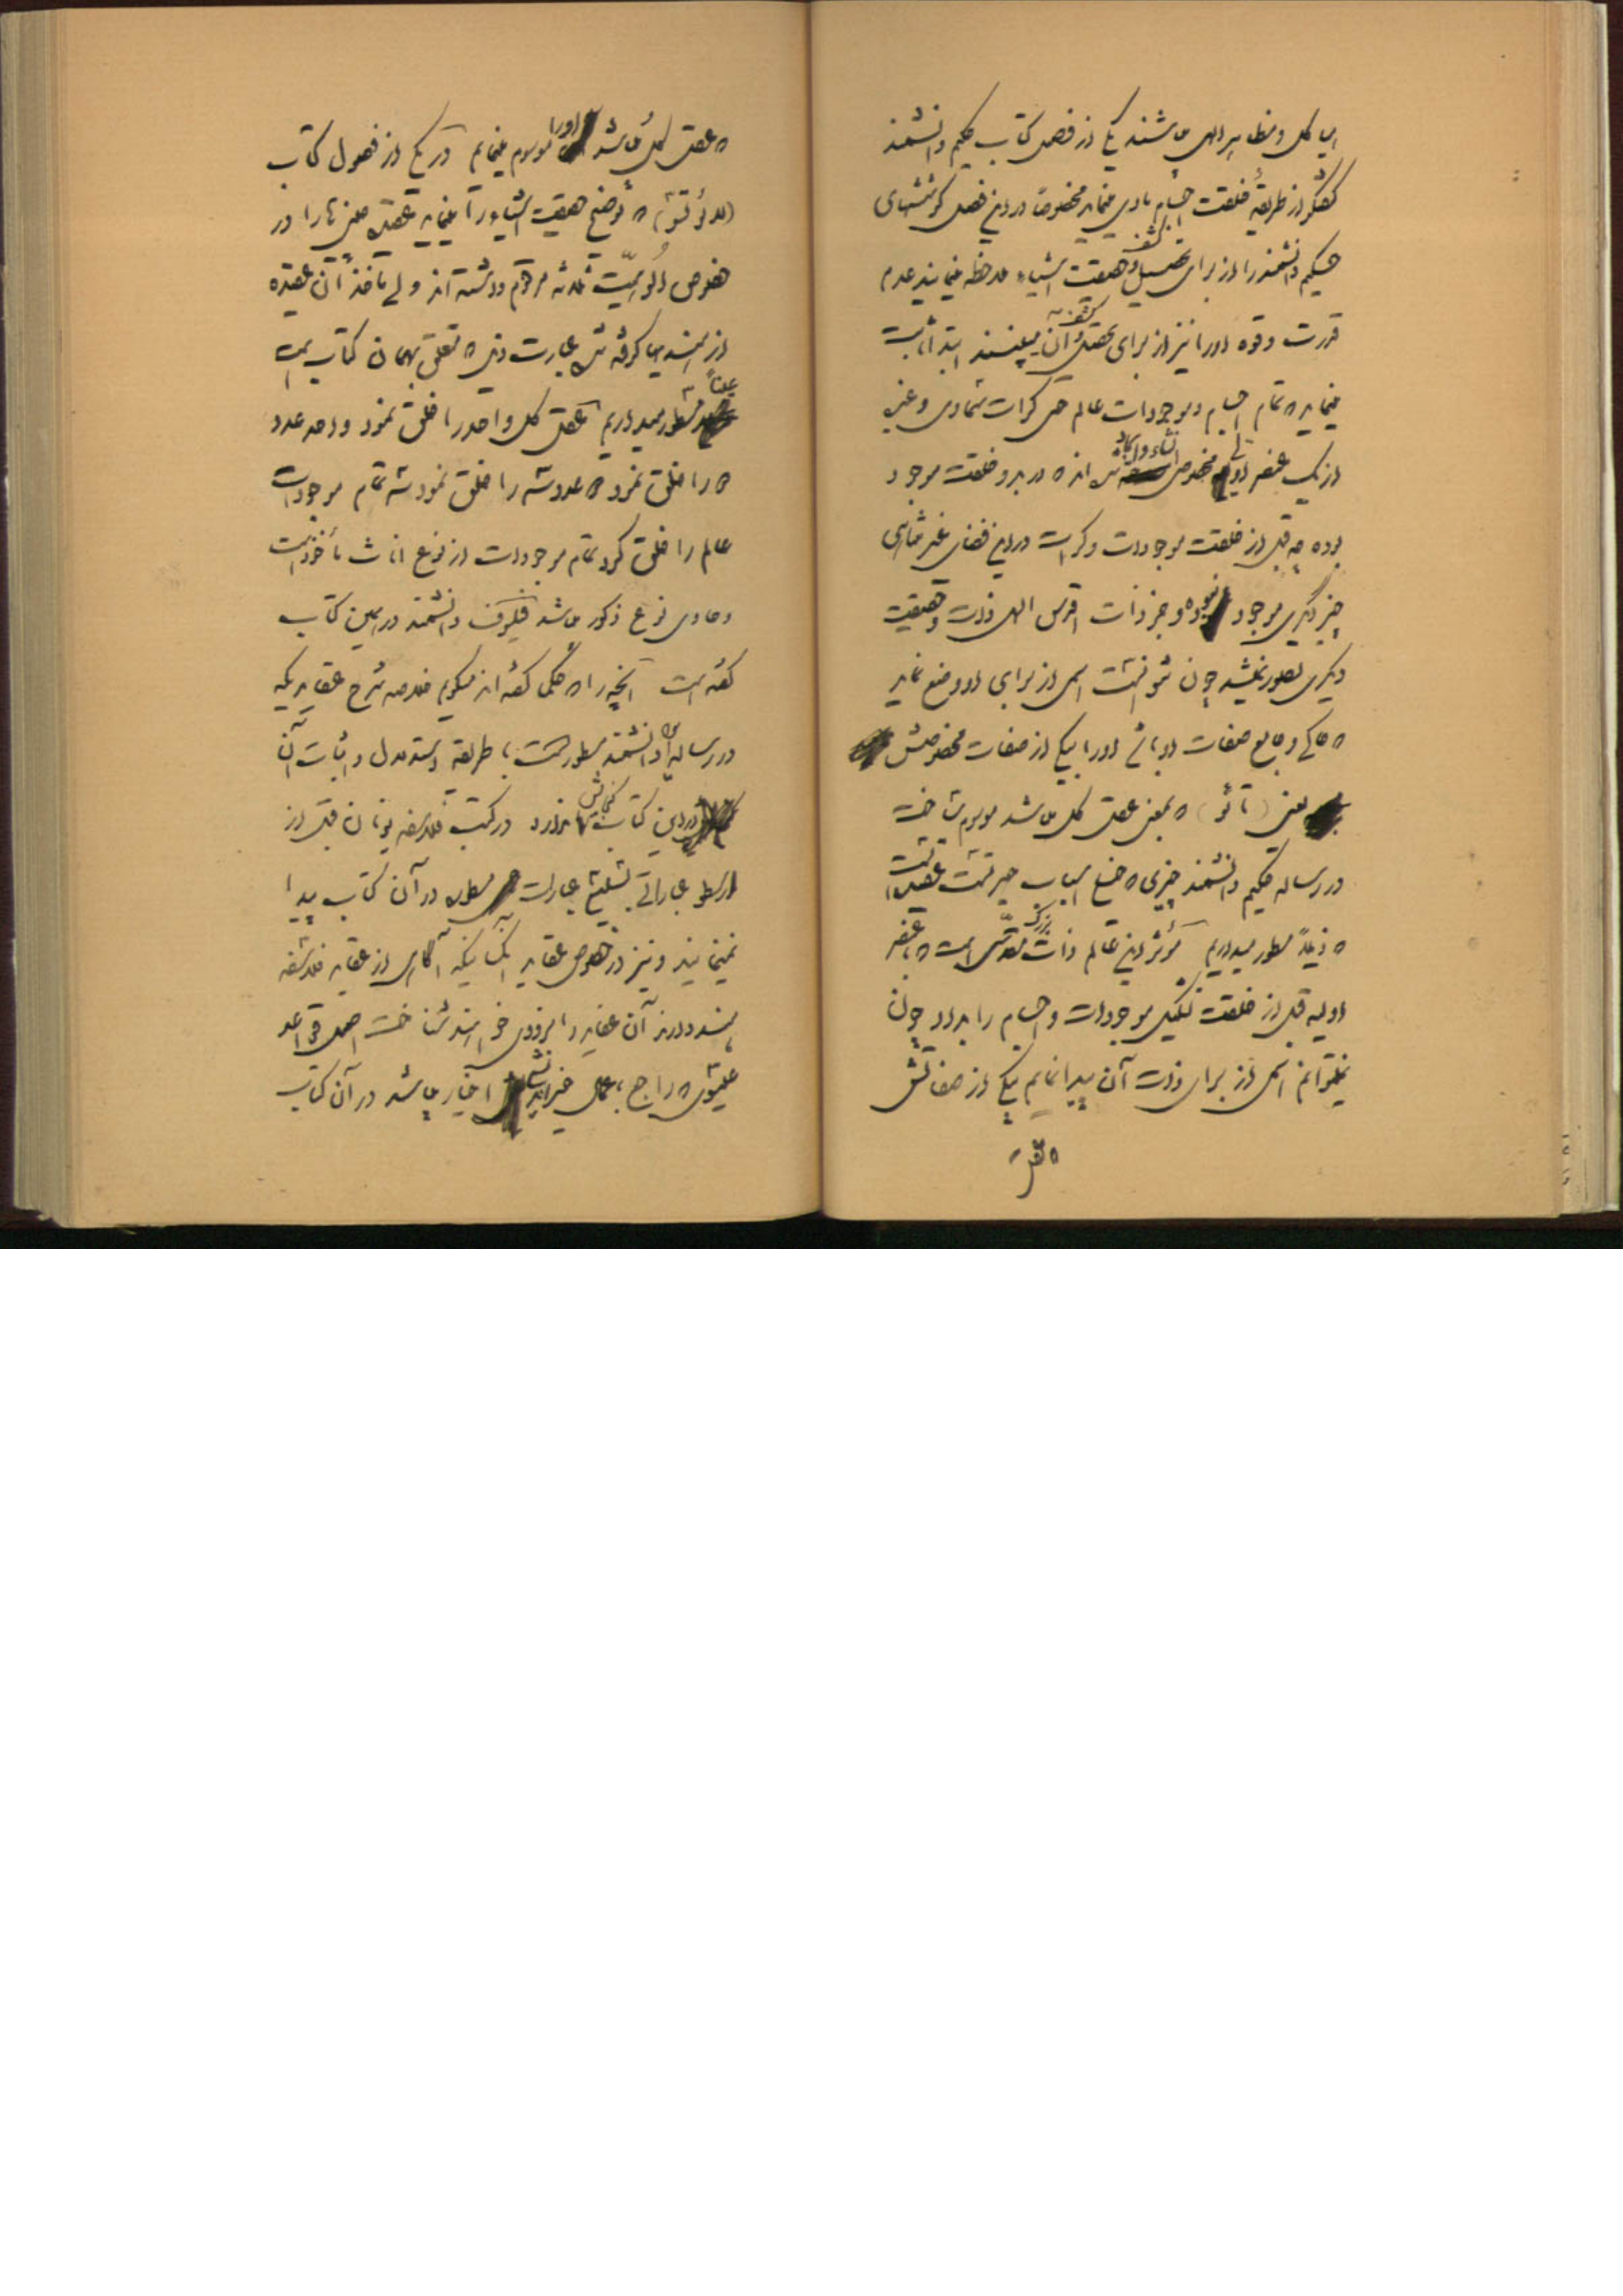 هیاکل و مظاهر الهی میباشند یکی از فصل کتاب حکیم دانشمند
گفتگو از طریقهٔ خلقت اجسام مادی مینماید مخصوصاً در این فصل کوششهای
حکیم دانشمند را از برای تحصیل و کشف حقیقت اشیاء ملاحظه مینمائید عدم
قدرت و قوه او را نیز از برای تحصیل و کشف آن میبینند ابتدا ثابت
مینماید که تمام اجسام و موجودات عالم حتی کرات سماوی و غیره
از یک عنصر اولی مخصوص انشاء و ایجاد شده‌اند که در بدو خلقت موجود
بوده چه قبل از خلقت موجودات و کرات در این فضای غیر متناهی
چیز دیگری موجود نبوده و جز ذات اقدس الهی ذات و حقیقت
دیگری تصور نمیشد چون نتوانست اسمی از برای او وضع نماید
که حاکی و جامع صفات او باشد او را بیکی از صفات مخصوصش
یعنی (تائو) که بمعنی عقل کل میباشد موسوم ساخت
در رساله حکیم دانشمند چیزی که خیلی اسباب حیرتست عقیده
که ذیلاً مسطور میداریم مؤثر این عالم ذات بزرگ مقدسی است که با عنصر
اولیه قبل از خلقت تشکیل موجودات و اجسام را بداد چون
نمیتوانم اسمی از برای ذات آن پیدا نمایم بیکی از صفاتش
که عقل
که عقل کل میباشد او را موسوم مینمایم در یکی از فصول کتاب
(لائوتسو) که توضیح حقیقت اشیاء را مینماید عقیده را در
خصوص الوهیت ثلاثه مرقوم داشته‌اند ولی مأخذ آن عقیده
از هندیها گرفته شده عبارت ذیل که تعلق بهمان کتاب است
عیناً مسطور میداریم عقل کل واحد را خلق نمود واحد عدد
دو را خلق نمود دو عدد سه را خلق نمود سه تمام موجودات
عالم را خلق کرد تمام موجودات از نوع اناث مأخوذ است
و حاوی نوع ذکور میباشد فیلسوف دانشمند در همین کتاب
گفته است آنچه را که حکمای گفته‌اند میگویم خلاصه شرح عقایدیکه
در رساله دانشمند مسطور است با طریقه استدلال و اثبات آن
در این کتاب گنجایش ندارد در کتب فلاسفه یونان قبل از
ارسطو عباراتی بتشبیه عبارات مسطوره در آن کتاب پیدا
نمینمایند و نیز در خصوص عقاید آنکسانیکه آگاهی از عقاید فلاسفه
هند دارند آن عقاید را بزودی خواهند شناخت اصل قواعد